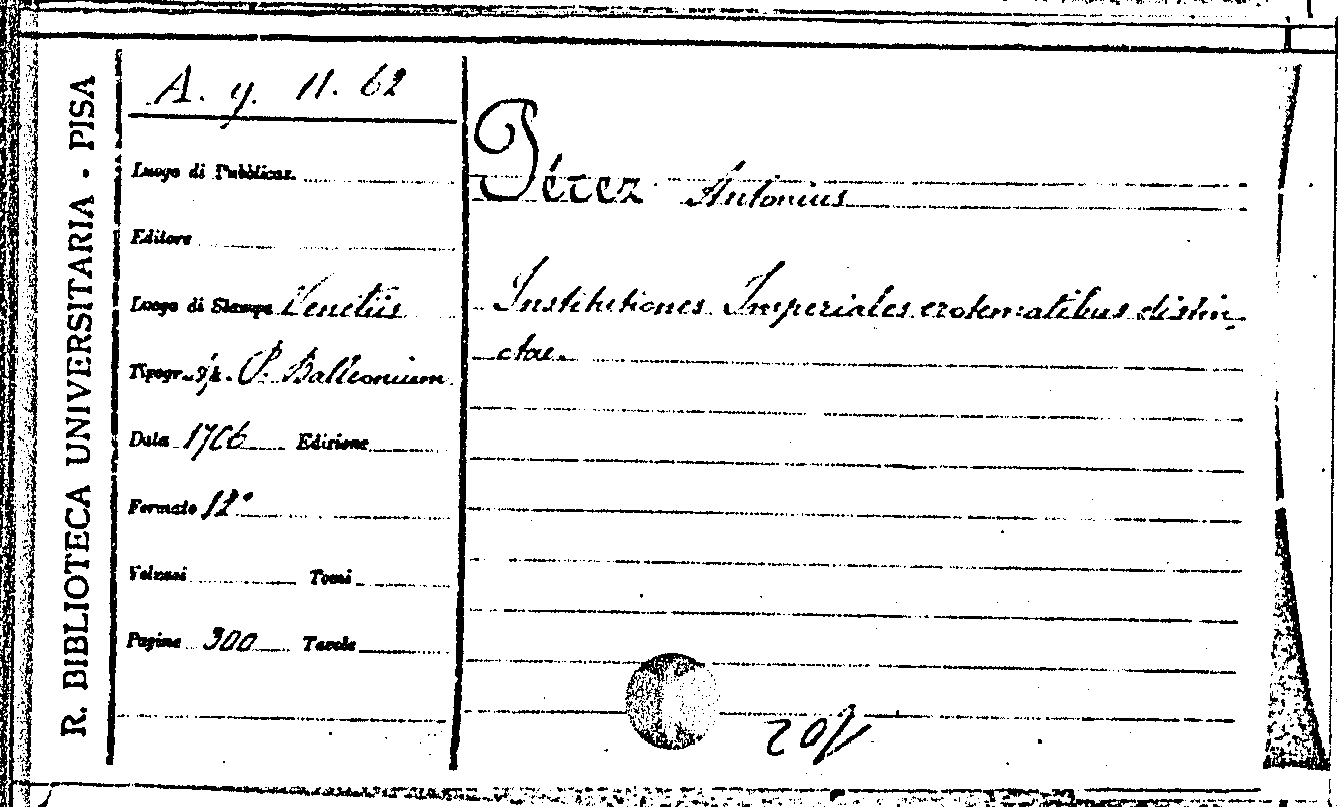 R. BIBLIOTECA UNIVERSITARIA - PISA
A. y. 11. 62
Luogo di Pubblicaz.
Editore
Luogo di Stampa Venetiis
Tipogr. P. Balleonium
Data 1706 Edizione
Formato 12°
Volumi Tomi
Pagine 300 Tavole
Pérez Antonius
Institutiones Imperiales erotematibus distin-
ctae.